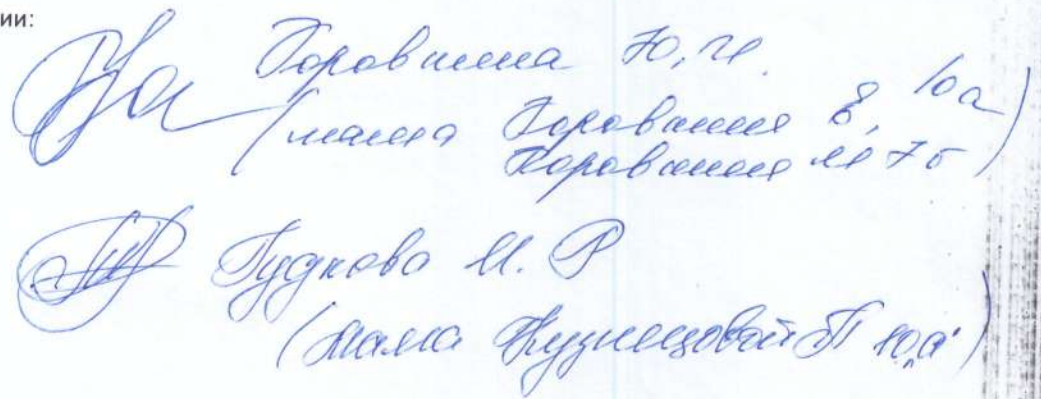 ии:
Поровшина Ю, И.
(мама Поровшина Е, 10а
Поровшина М 7б)
Гудкова М. Р
(Мама Кузнецовой П 10„а")